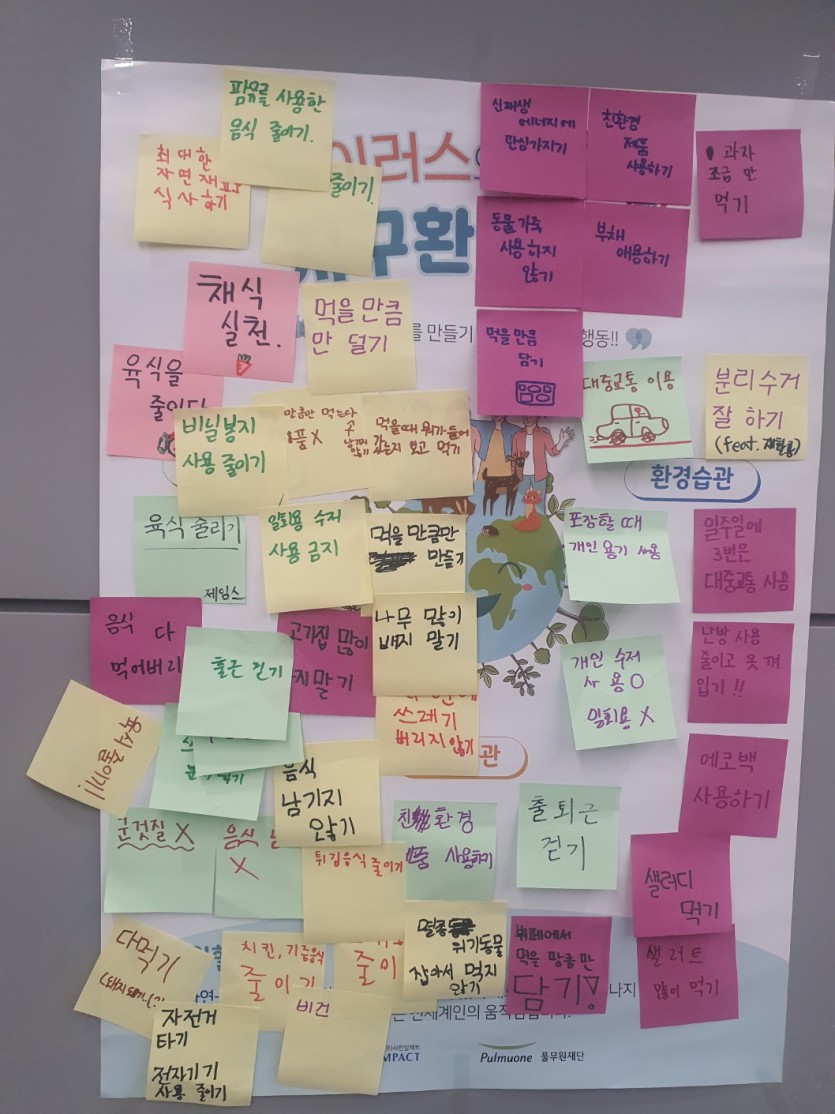 팜유를 사용한
음식 줄이기.
최대한
자연재료
식사하기
줄이기
이러스
구환
신재생
에너지에
관심가지기
친환경
제품
사용하기
과자
조금만
먹기
동물가죽
사용하지
않기
부채
애용하기
채식
실천.
먹을 만큼
만 덜기
를 만들기
행동!!
먹을만큼
담기
육식을
줄인다
비닐봉지
사용 줄이기
만큼만 먹는다
먹을때 뭐가 들어
갔는지 보고 먹기
대중교통 이용
분리수거
잘 하기
(feat. 재활용)
환경습관
육식 줄이기
제임스
일회용 수저
사용 금지
먹을 만큼만
만들기
포장할 때
개인 용기 사용
일주일에
3번은
대중교통 사용
음식 다
먹어버리
출근 걷기
고기집 많이
지 말기
나무 많이
베지 말기
개인 수저
사용O
일회용 X
난방 사용
줄이고 옷 껴
입기!!
육식 줄이기!!
쓰레기
버리지 않기
관
음식
남기지
않기
에코백
사용하기
군것질 X
음식
X
튀김음식 줄이기
친환경
품 사용하기
출퇴근
걷기
샐러디
먹기
다먹기
치킨, 기름음식
줄이기
줄이
멸종
위기동물
잡아서 먹지
않기
뷔페에서
먹을 땅콩만
담기!
샐러드
많이 먹기
나지
은 전세계인의 움직임입니다!
자전거
타기
전자기기
사용 줄이기
비건
MPACT
Pulmuone 풀무원재단